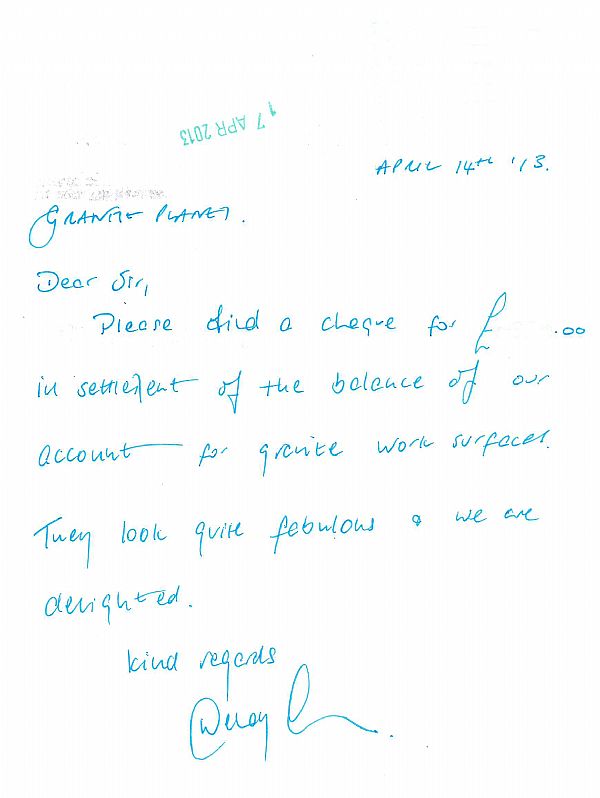 17 APR 2013
APRIL 14TH '13.
GRANITE PLANET.
Dear Sir,
Please find a cheque for £ .00
in settlement of the balance of our
account for granite work surfaces.
They look quite fabulous & we are
delighted.
kind regards